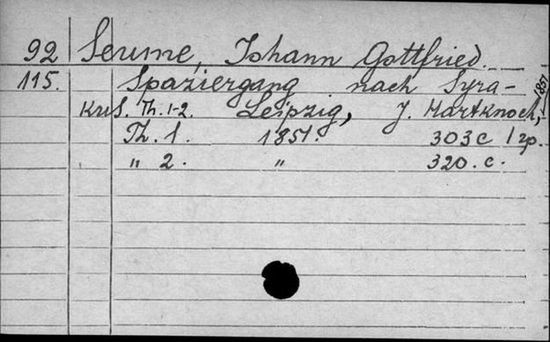 92 Seume, Johann Gottfried.
115. Spaziergang nach Syra-
kus. Th. 1-2. Leipzig, J. Hartknoch, 1851
Th. 1. 1851. 303 c 1 гр.
" 2. " 320. c.